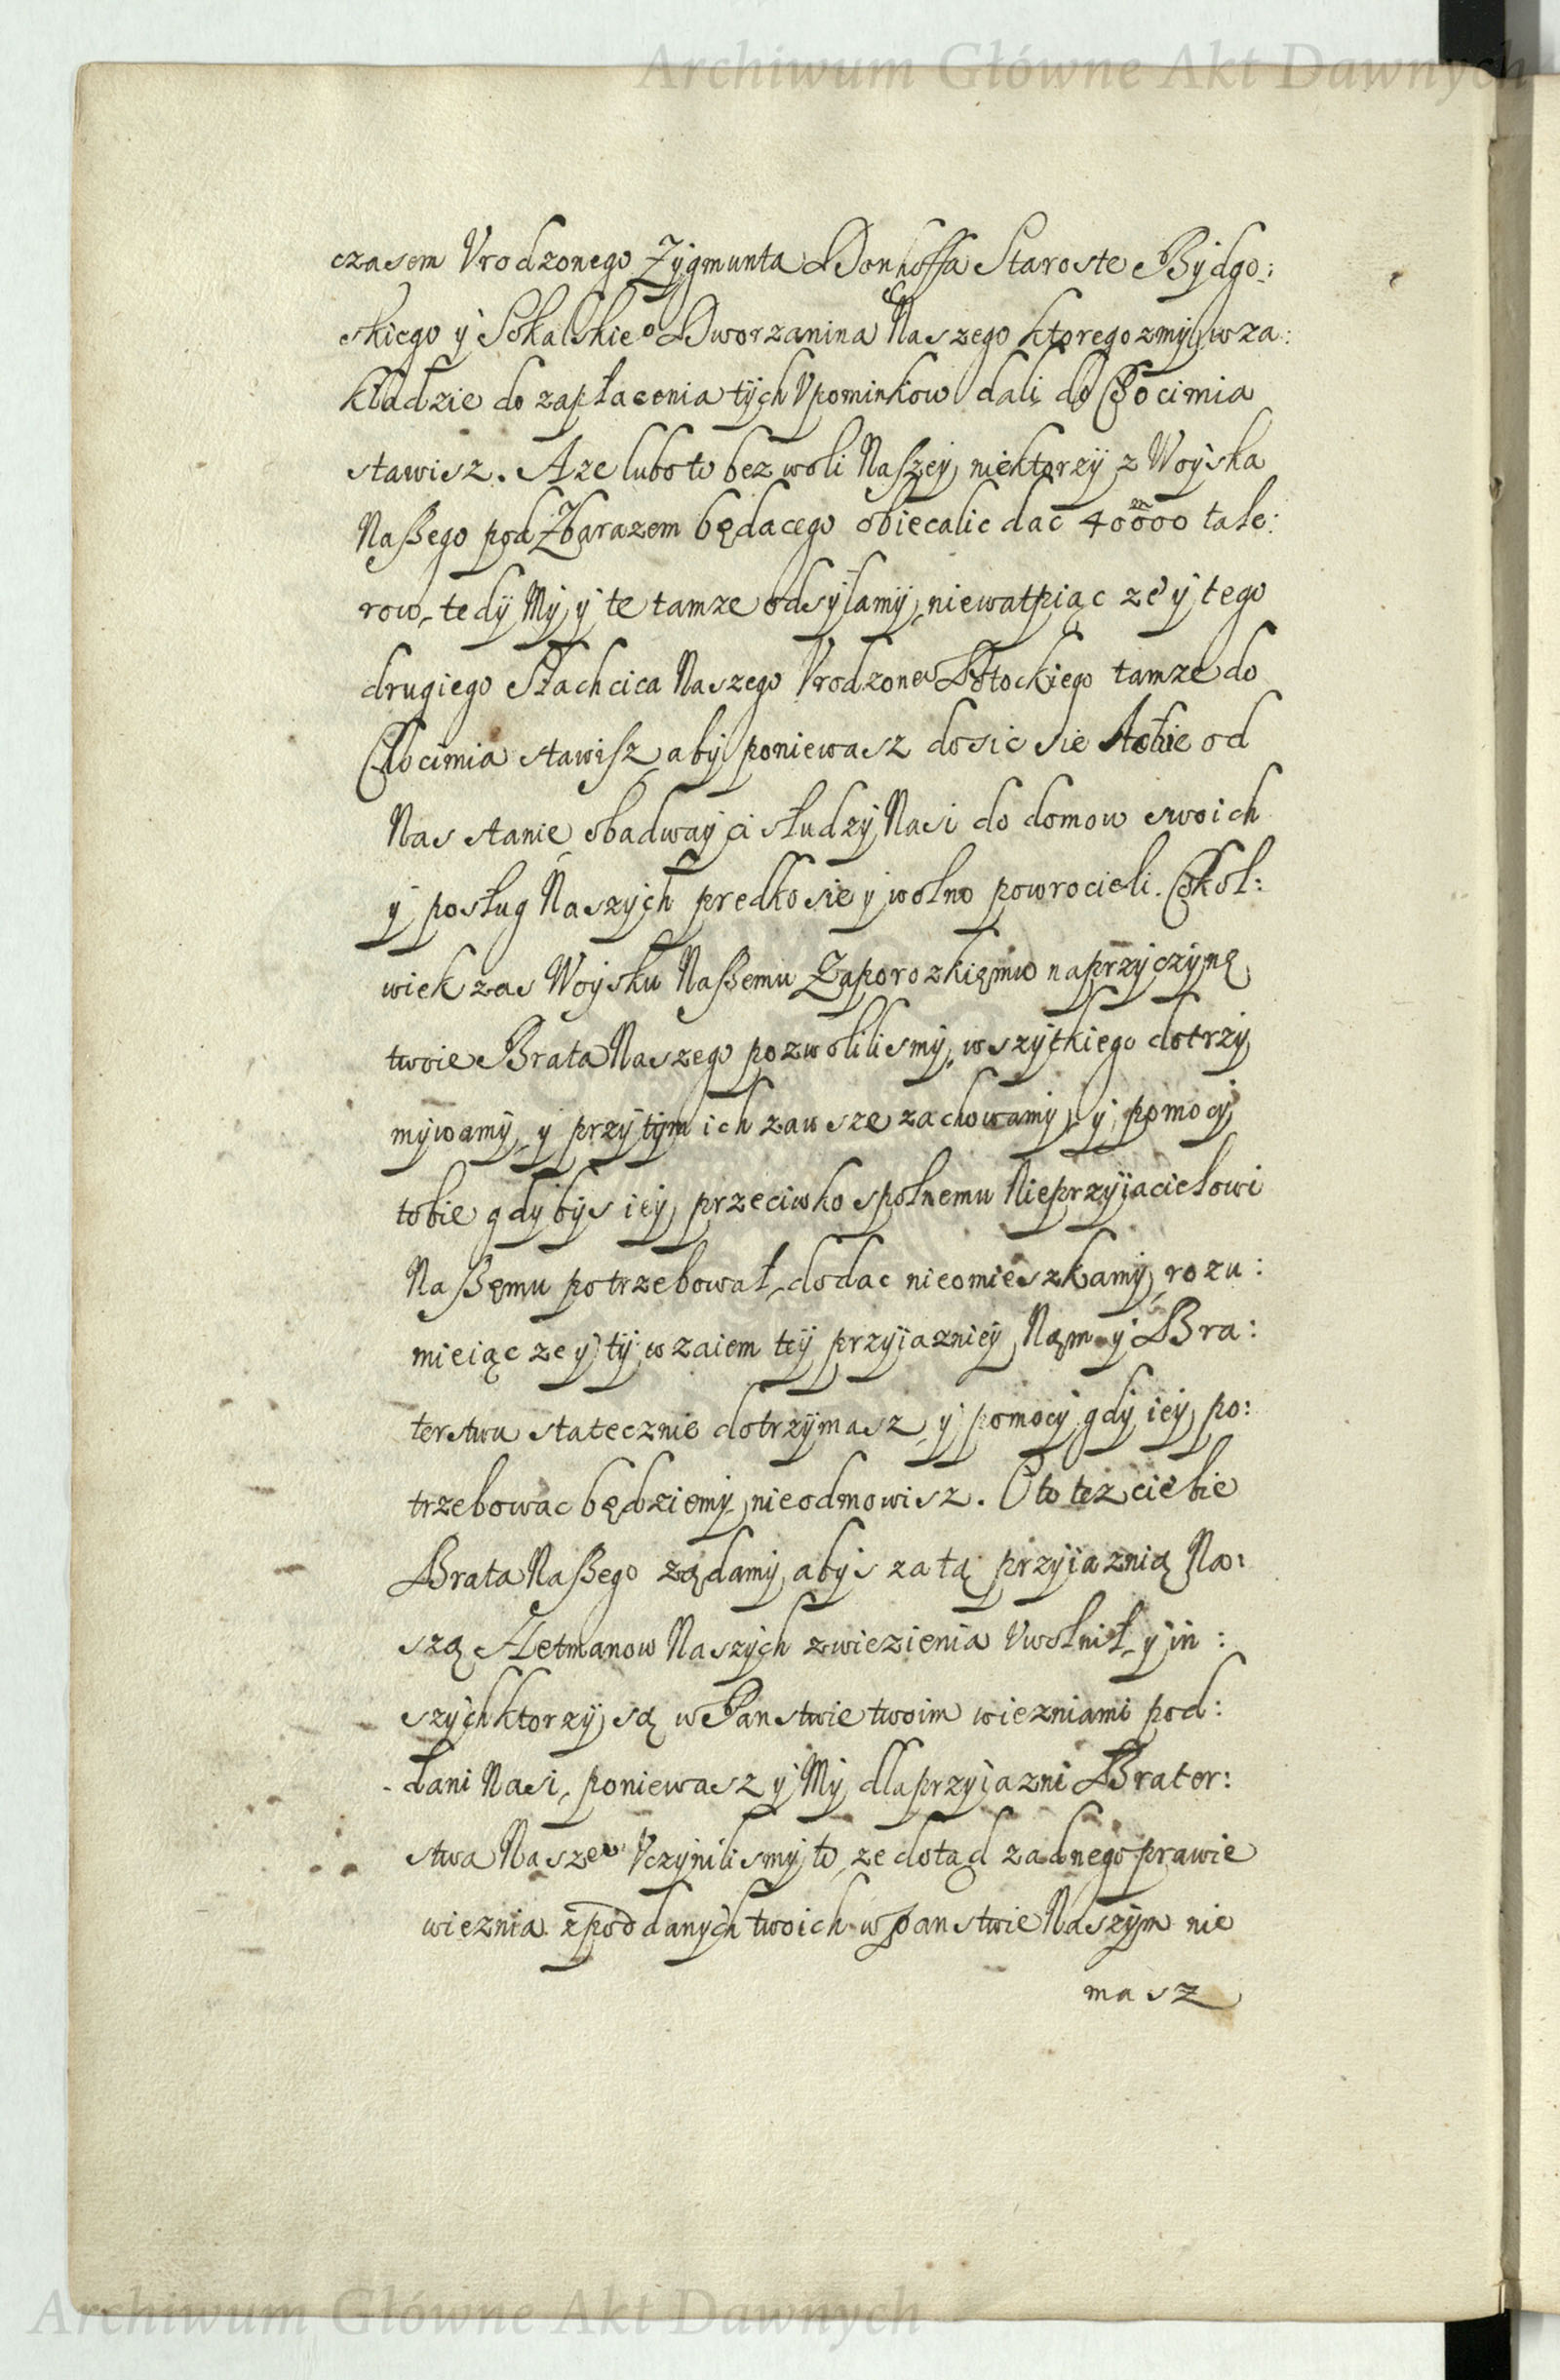 Archiwum Główne Akt Dawnych
czasem Vrodzonego Zygmunta Donhoffa Staroste Bydgo:
skiego y Sokalskieo Dworzanina Naszego ktorego zmy w za:
kładzie do zapłacenia tych Vpominkow dali do Chocimia
stawisz. A ze lubo to bez woli Naszey niektorzy z Woyska
Naßego pod Zbarazem będacego obiecalic dac 40000 tale:
row, tedy My y te tamze odsyłamy, niewatpiąc ze y tego
drugiego Szlachcica Naszego Vrodzoneo Potockiego tamze do
Chocimia stawisz, aby poniewasz dosic sie tobie od
Nas stanie, obadway ci słudzy Nasi do domow swoich
y posług Naszych predko sie y wolno powrocieli. Cokol:
wiek zas Woysku Naßemu Zaporozkięmu na przyczynę
twoie Brata Naszego pozwolilismy, wszytkiego dotrzy
mywamy, y przy tym ich zawsze zachowamy, y pomocy
tobie gdybys iey przeciwko spolnemu Nieprzyiacielowi
Naßęmu potrzebował, dodac nieomieszkamy, rozu:
mieiąc ze y ty w zaiem tey przyiazniey Nąm y Bra:
terstwu statecznie dotrzymasz, y pomocy gdy iey po:
trzebowac będziemy, nieodmowisz. O to tez ciebie
Brata Naßego ządamy, abys za tą przyiaznią Na:
szą Hetmanow Naszych z wiezienia Vwolnił, y in:
szych ktorzy są w Panstwie twoim wiezniami pod:
dani Nasi, poniewasz y My dla przyiazni Brater:
stwa Naszeo Vczynilismy to, ze dotąd zadnego prawie
wieznia z poddanych twoich w panstwie Naszym nie
masz
Archiwum Główne Akt Dawnych